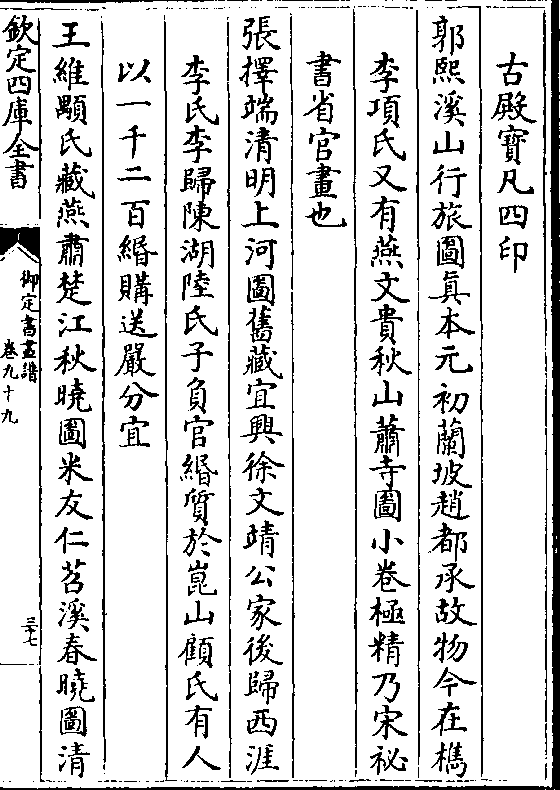 古殿寳凡四印
郭熙溪山行旅圖真本元初蘭坡趙都承故物今在檇
李項氏又有燕文貴秋山蕭寺圖小卷極精乃宋祕
書省官畫也
張擇端清明上河圖舊藏宜興徐文靖公家後歸西涯
李氏李歸陳湖陸氏子負官緡質於崑山顧氏有人
以一千二百緡購送嚴分宜
王維顒氏藏燕肅楚江秋曉圖米友仁苕溪春曉圖清
欽定四庫全書
御定書畫譜
卷九十九
三十七